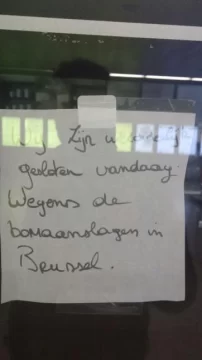 Wij zijn
gesloten vandaag
Wegens de
bomaanslagen in
Brussel.